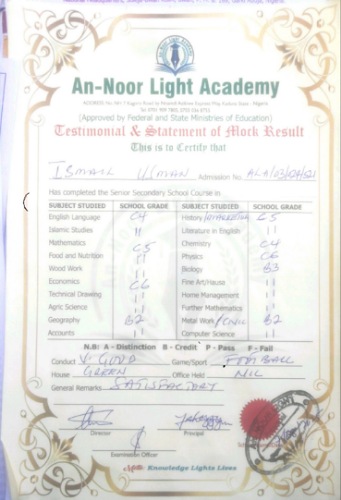 An-Noor Light Academy
(Approved by Federal and State Ministries of Education)
Testimonial & Statement of Mock Result
This is to Certify that
ISMAIL USMAN Admission No.
Has completed the Senior Secondary School Course in
SUBJECT STUDIED SCHOOL GRADE SUBJECT STUDIED SCHOOL GRADE
English Language C4 History/MARKETING C5
Islamic Studies 11 Literature in English 11
Mathematics C5 Chemistry C4
Food and Nutrition 11 Physics C6
Wood Work 11 Biology B3
Economics C6 Fine Art/Hausa 11
Technical Drawing 11 Home Management 11
Agric Science 11 Further Mathematics 11
Geography B2 Metal Work/CIVIC B2
Accounts 11 Computer Science 11
N.B: A - Distinction B - Credit P - Pass F - Fail
Conduct V. GOOD Game/Sport FOOTBALL
House GREEN Office Held NIL
General Remarks SATISFACTORY
Director Principal
Examination Officer
Motto: Knowledge Lights Lives